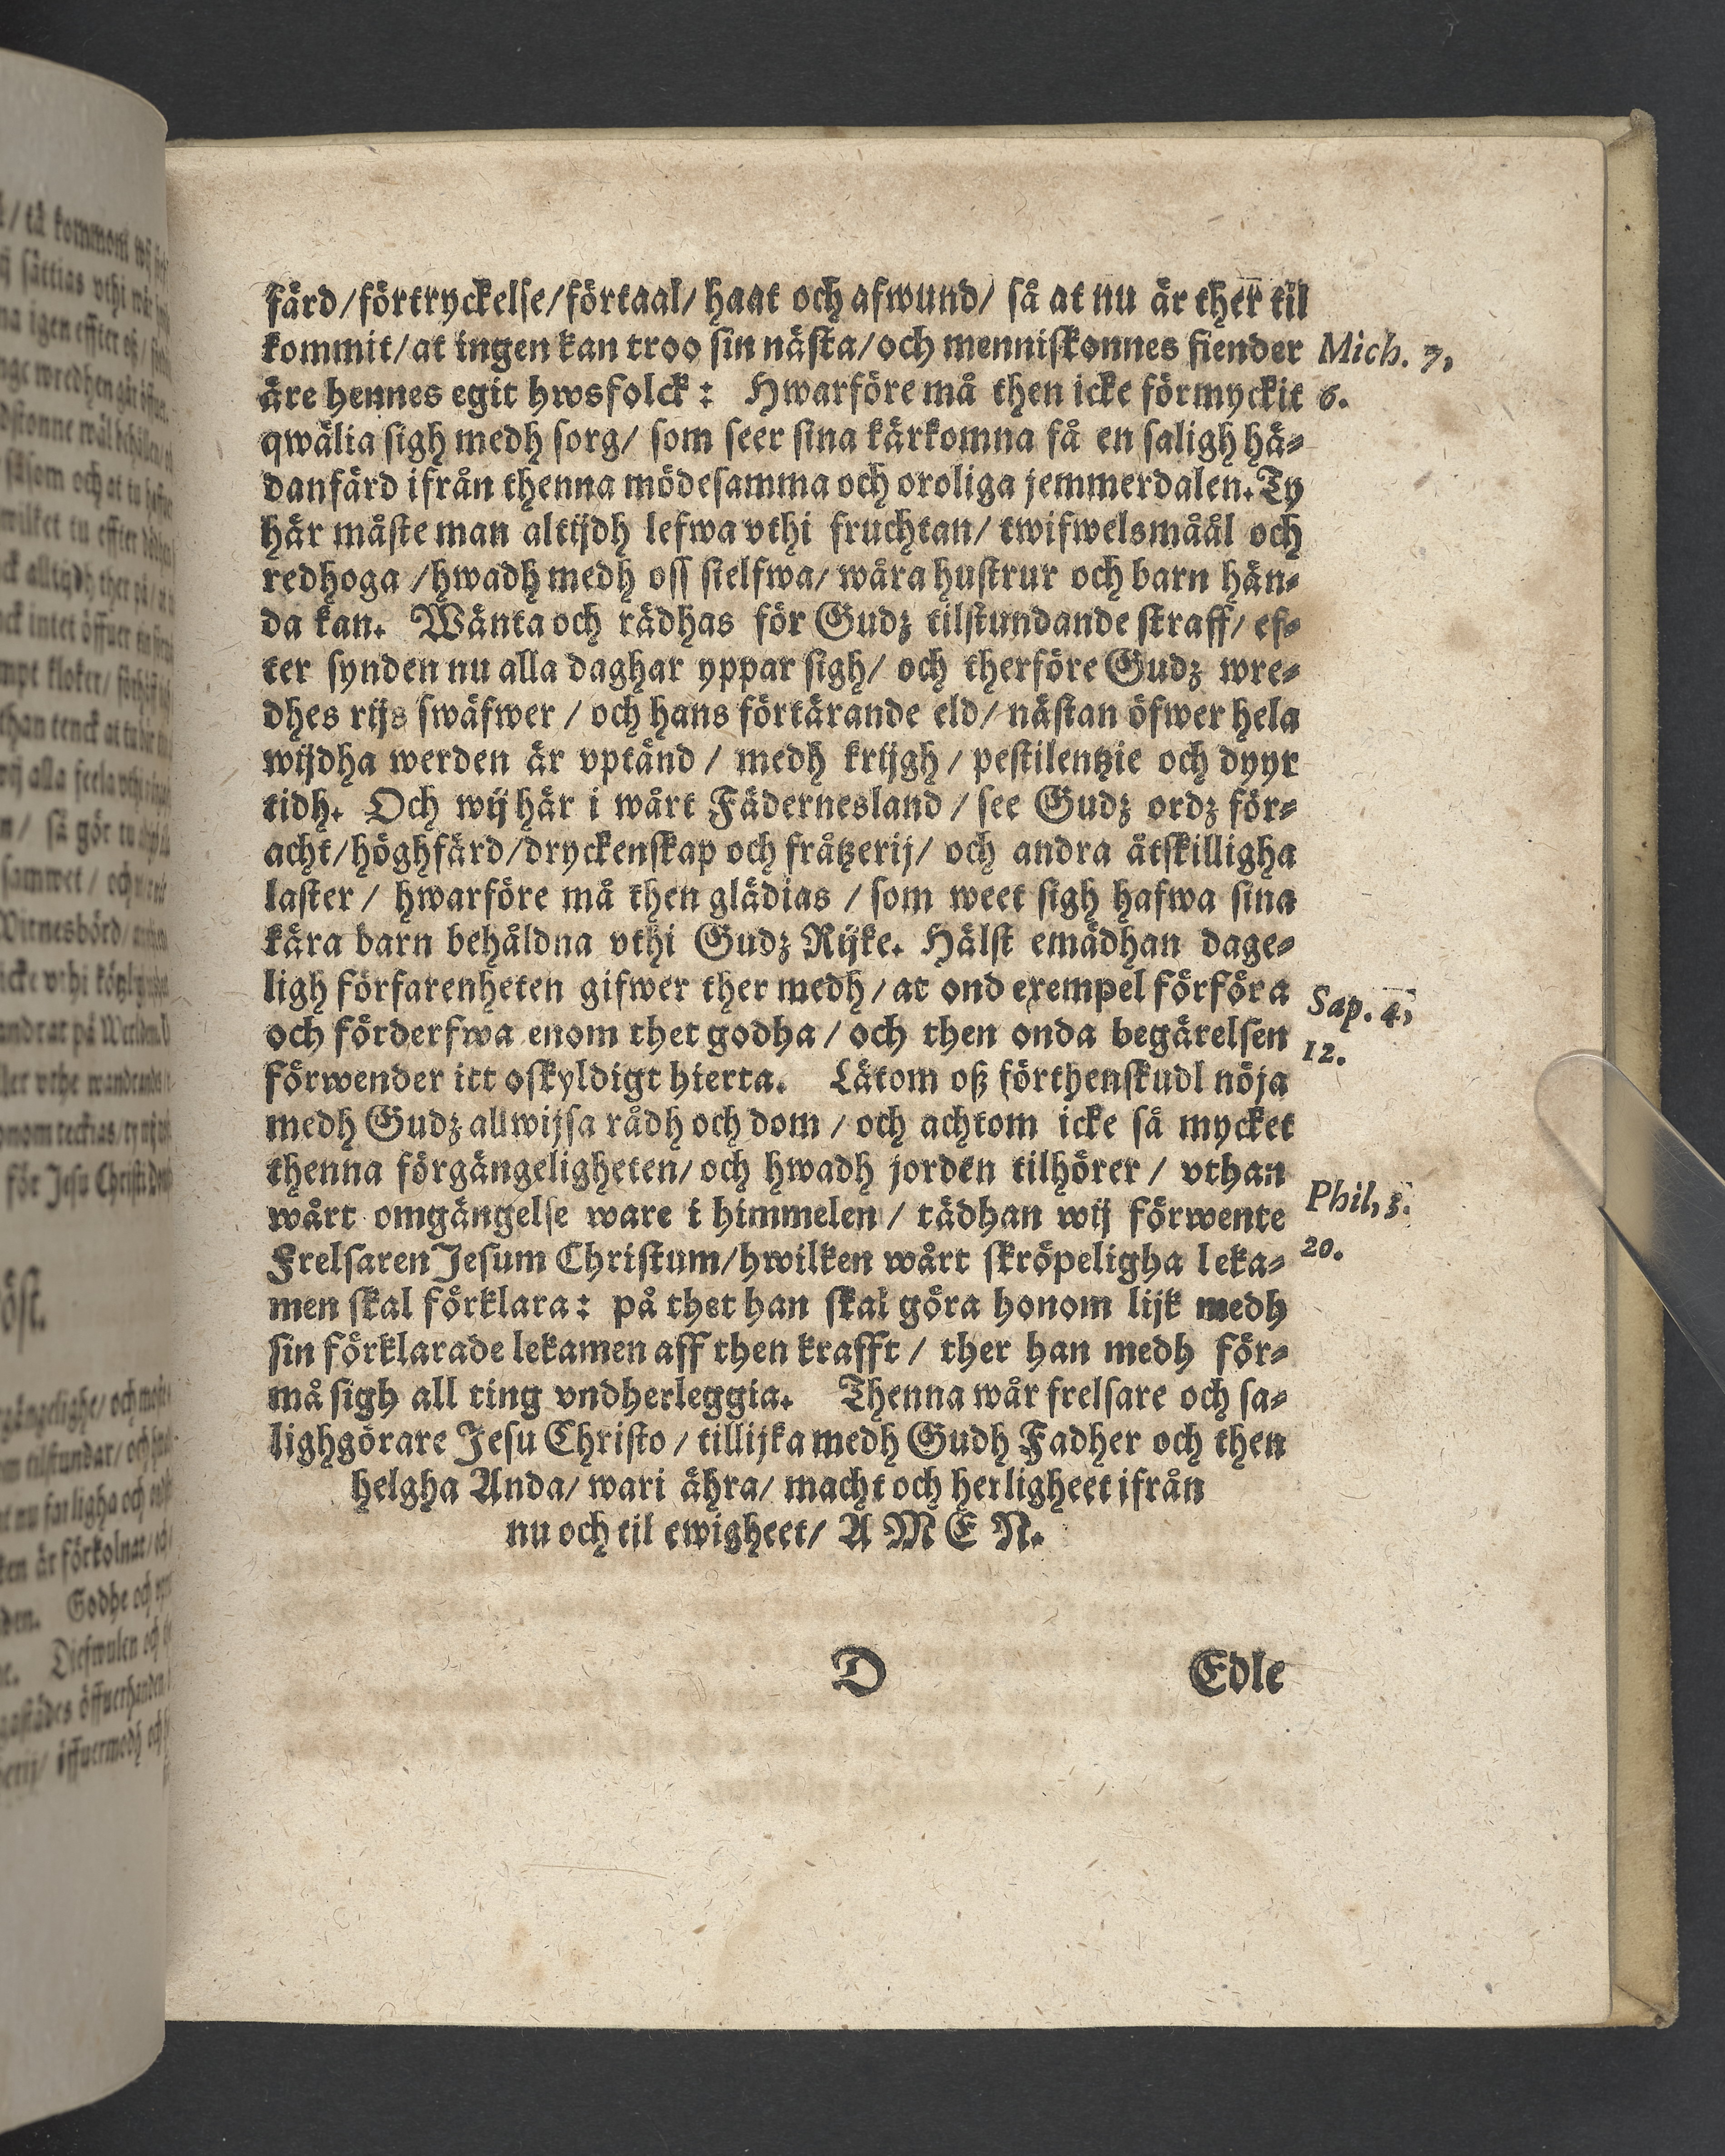 färd/förtryckelse/förtaal/ haat och afwund/ så at nu är ther til
kommit/at ingen kan troo sin nästa/och menniskonnes fiender
Mich. 7,
äre hennes egit hwsfolck: Hwarföre må then icke förmyckit
6.
qwälia sigh medh sorg/ som seer sina kärkomna få en saligh hä-
danfärd ifrån thenna mödesamma och oroliga jemmerdalen. Ty
här måste man altijdh lefwa vthi fruchtan/ twifwelsmåål och
redhoga /hwadh medh oss sielfwa/ wåra hustrur och barn hän-
da kan. Wänta och rädhas för Gudz tilstundande straff/ ef-
ter synden nu alla daghar yppar sigh/ och therföre Gudz wre-
dhes rijs swäfwer / och hans förtärande eld/ nästan öfwer hela
wijdha werden är vptänd / medh krijgh / pestilentzie och dyyr
tidh. Och wij här i wårt Fädernesland / see Gudz ordz för-
acht/höghfärd/dryckenskap och fråtzerij/ och andra åtskilligha
laster / hwarföre må then glädias / som weet sigh hafwa sina
kära barn behåldna vthi Gudz Rijke. Hälst emädhan dage-
ligh förfarenheten gifwer ther medh/ at ond exempel förföra
Sap. 4,
och förderfwa enom thet godha / och then onda begärelsen
12.
förwender itt oskyldigt hierta. Låtom oß förthenskudl nöja
medh Gudz allwijsa rådh och dom / och achtom icke så mycket
thenna förgängeligheten/ och hwadh jorden tilhörer / vthan
wårt omgängelse ware i himmelen / tädhan wij förwente
Phil, 3.
Frelsaren Jesum Christum/hwilken wårt skröpeligha leka-
20.
men skal förklara: på thet han skal göra honom lijk medh
sin förklarade lekamen aff then krafft / ther han medh för-
må sigh all ting vndherleggia. Thenna wår frelsare och sa-
lighgörare Jesu Christo / tillijka medh Gudh Fadher och then
helgha Anda/ wari ähra/ macht och herligheet ifrån
nu och til ewigheet/ AMEN.
D
Edle